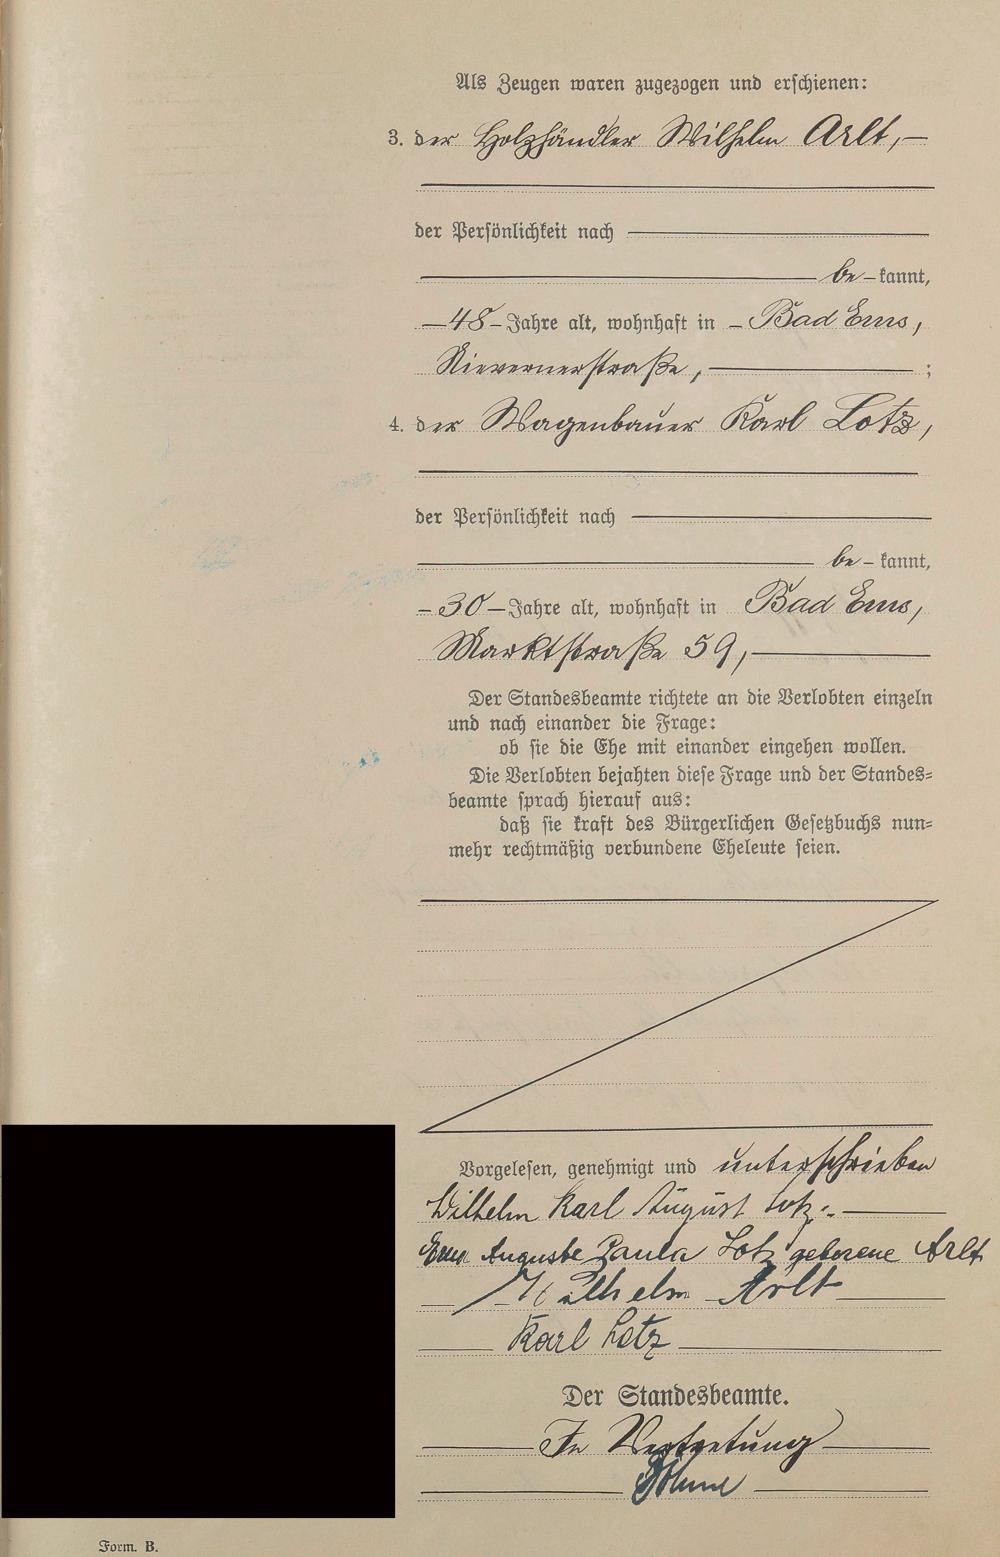 Als Zeugen waren zugezogen und erschienen:
3. der Holzhändler Wilhelm Arlt,
der Persönlichkeit nach
be-kannt,
48 Jahre alt, wohnhaft in Bad Ems,
Nievernerstraße, ;
4. der Wagenbauer Karl Lotz,
der Persönlichkeit nach
be-kannt,
30 Jahre alt, wohnhaft in Bad Ems,
Marktstraße 59,
Der Standesbeamte richtete an die Verlobten einzeln
und nach einander die Frage:
ob sie die Ehe mit einander eingehen wollen.
Die Verlobten bejahten diese Frage und der Standes=
beamte sprach hierauf aus:
daß sie kraft des Bürgerlichen Gesetzbuchs nun=
mehr rechtmäßig verbundene Eheleute seien.
Vorgelesen, genehmigt und unterschrieben
Wilhelm Karl August Lotz.
Auguste Paula Lotz geborene Arlt
Wilhelm Arlt
Karl Lotz
Der Standesbeamte.
In Vertretung
Form. B.